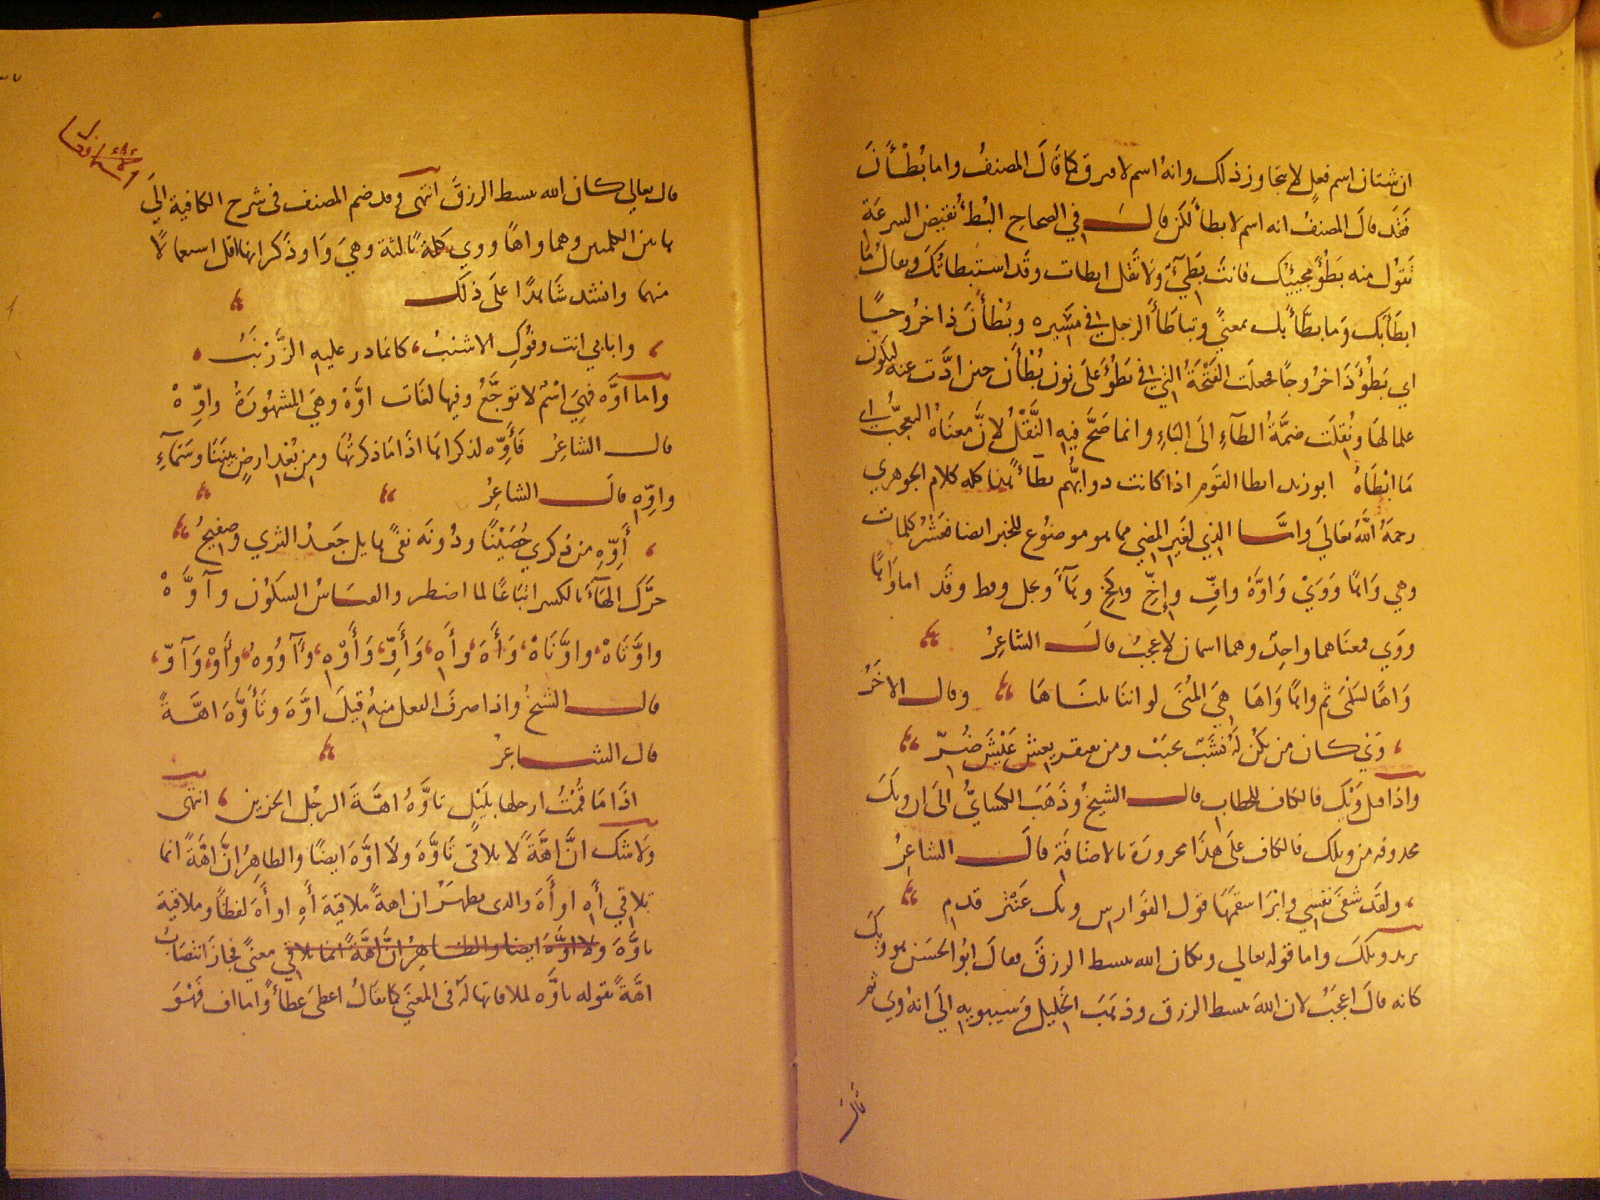 ان شتان اسم فعل لا يتجاوز ذلك وانه اسم لافترق كما قال المصنف واما بُطْأَنَ
فقد قال المصنف انه اسم لابطأ لكن قال في الصحاح البُطْءُ نقيض السرعة
تقول منه بَطُؤَ مجيئك فانت بَطِيْءٌ ولا تقل ابطات وقد استبطاتك ويقال ما
ابطأ بك وما بطّأ بك بمعنىً وتباطأ الرجل في مسيره وبُطْأَنَ ذا خروجًا
اي بَطُؤَ ذا خروجًا فجعلت الفتحة التي في بَطُؤَ على نون بُطْأَن حين ادّت عنه ليكون
علما لها ونُقِلَت ضمَّةُ الطاءِ الى الباءِ وانما صَحَّ فيه النَّقْلُ لانَّ معناهُ التعجبُ اي
مَا ابْطَاهُ ابو زيد ابطا القوم اذا كانت دوابُّهم بطاءً هذا كله كلام الجوهري
رحمَهُ اللَّهُ تعَالى وامَّا الذي لغير المضي مما هو موضوع للخبر ايضا فعَشْرُ كلمات
وهي وَاهًا وَوَيْ وَاوَّهْ وافٍّ وإخٍّ وكخٍ وهَاءَ وبجل وقط وقد اما وَاهًا
ووَي فمعنَاهما واحِدٌ وهما اسمان لاعجبُ قالَ الشاعِرُ
وَاهًا لسَلْمَى ثم واهًا وَاهَا هِيَ المُنَى لو اننا نلنَاهَا وقال الاخَرُ
وَيْ كان من يكُن لَهُ نَشَبٌ يحبَبْ ومن يفتقر يعِشْ عَيْشَ ضُرِّ
واذا قيل وَيْكَ فالكاف للخطاب قال الشيخُ وذَهَبَ الكسايُّ الى ان ويكَ
محذوفه من ويلك فالكاف على هذا مجرورَة بالاضَافةِ قالَ الشاعِرُ
ولقد شفَى نفسِي وابْرَا سقمَهَا قول الفوارس ويك عَنْتَرَ قدم
يريد ويلكَ واما قوله تعالى ويكان الله يبسط الرزق فقالَ ابُو الحسَن هو ويكَ
كانه قالَ اعجَبُ لان اللهَ يبسط الرزق وذهَبَ الخليل وَسيبويه الى انهُ وَيْ ثم
قال
قال تعالى كان الله يبسط الرزقَ انتهى وقد ضم المصنف في شرح الكافية الى
هاتين الكلمتين وهما واهًا ووي كلمةً ثالثة وهيَ وَا وذكر انها اقل استعمالًا
منهما وانشد شَاهدًا علَى ذلكَ
وابابي انت وفُوكِ الاشنبُ كانما ذر عليه الزَّرْنَبُ
واما اوَّه فهيَ اسْمٌ لاتوجَّعُ وفيها لغات اوَّهْ وهيَ المشهُورَةُ واوِّهْ
قال الشاعِرُ فَأَوِّه لذكراها اذَا مَا ذكرتُهَا ومِن بُعْدِ ارضٍ بينَنَا وسَمَاءِ
واوِّهِ قالَ الشاعِرُ
أَوِّهِ من ذكري حُصَيْنًا ودُونَه نقىً هايل جَعدُ الثري وصَفيحُ
حرَّك الهاءَ بالكسر اتباعًا لما اضطر والقيَاسُ السكُون وآوَّهْ
واوَّتَاهْ واوَّتَاهْ وَأَهَ وأَهِ وَأَوِّ وَأَوْهِ وَآوُوهُ وأَوْ وَآوّ
قال الشيخُ واذا صرفَ الفعل منهُ قيلَ اوَّهَ وتَأَوَّهَ اهَّةً
قال الشاعِرُ
اذَا مَا قُمْتُ ارحلها بلَيْلٍ تاوَّهُ اهَّةَ الرجُل الحزين انتهى
ولا شك انَّ اهَّةً لا يلاقي تَاوَّهَ ولَا اوَّهَ ايضًا والظاهرُ انَّ اهَّةً انما
تلاقي أَهِ او أَهَ والذي يظهر ان اهةً ملاقية أَهِ او أَهَ لفظًا وملاقية
تاوَّهَ ولا اوَّهَ ايضا والظاهِرُ انَّ اهَّةً انما يلاقي معنىً فجازَ انتصَابُ
اهَّةً بقوله تاوَّه لملاقاتها لَهُ في المعنى كما يقَالُ اعطى عطَاءً واما اف فهْوَ